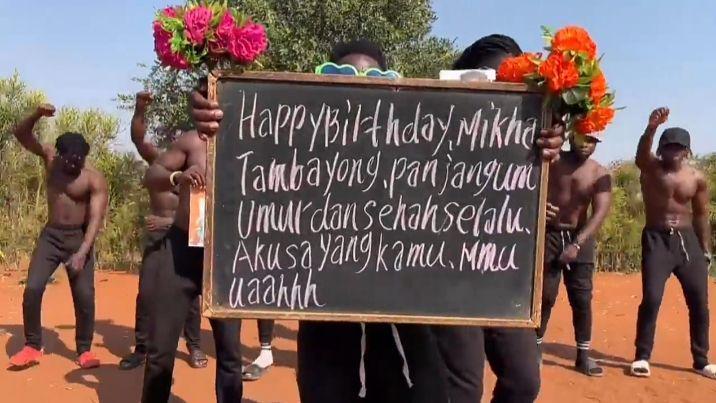 HappyBirthday, Mikha
Tambayong, panjangum
Umur dan sehahselalu.
Akusayangkamu. Mmu
uaahhh